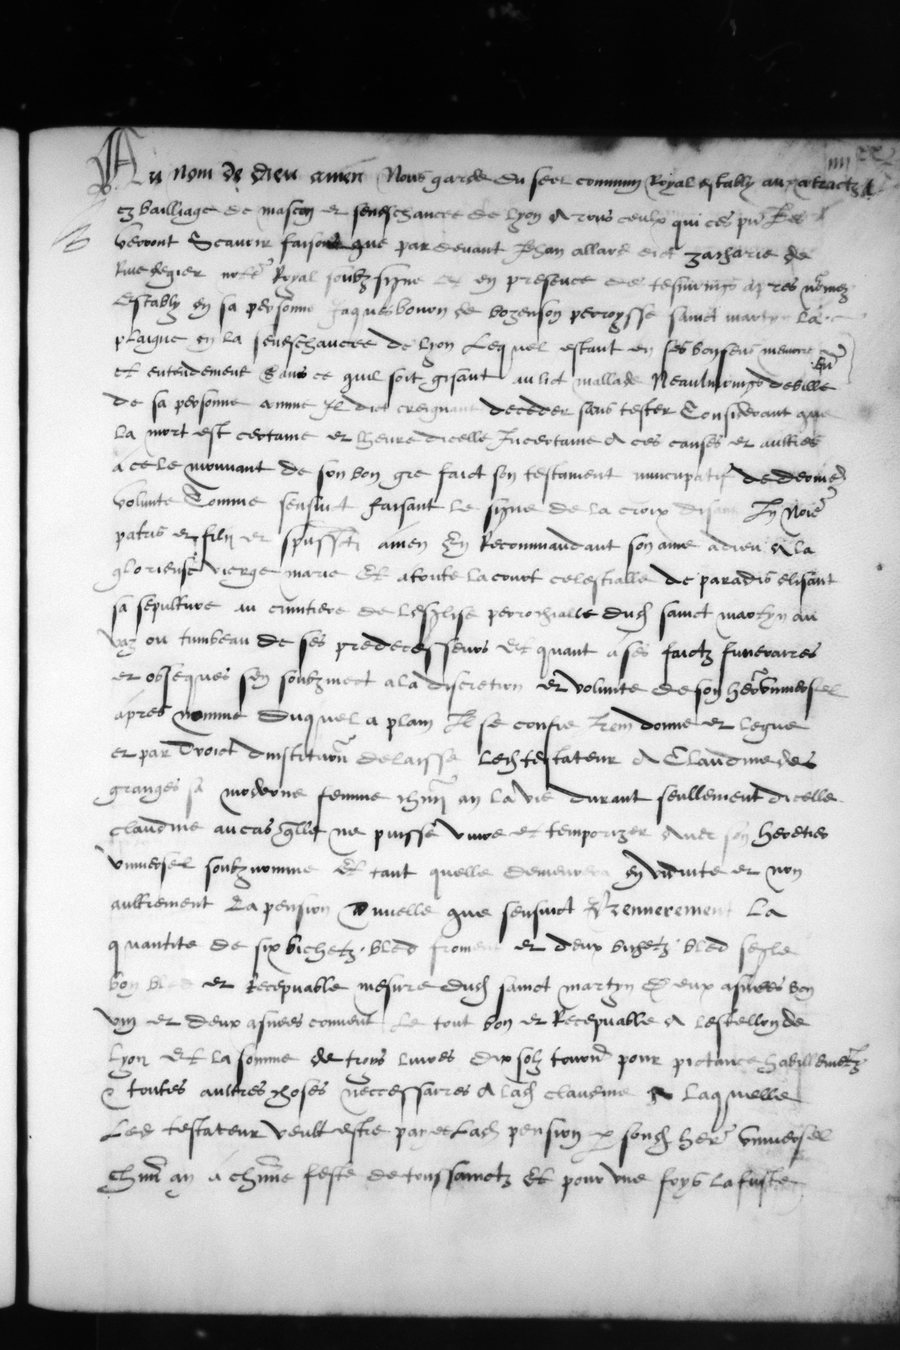 Au nom de dieu amen Nous garde du seel commun Royal establÿ aux contractz
ez bailliage de mascon et seneschaucee de lyon A tous ceulx qui ces pntes
verront Scavoir faisons que par devant Jehan allard dict zacharie de
Rivedegier notre Royal soubz signe et en presence des tesmoings apres nomez
Estably en sa personne Jaques bourn de bozenson perroysse sainct martyn la
plaigne en la seneschaucee de lyon Lequel estant en ses bon sens memoire
et entendement Sans ce quil soit gisant au lict mallade Neaulmoings debille
de sa personne comme Il dict creignant deceder sans tester Considerant que
la mort est certaine et lheure dicelle Incertaine A ces causes et aultres
a ce le mouvant de son bon gre faict son testament nuncupatif de derniere
volunte Comme sensuict faisant le signe de la croix disant In Noie
patris et filij et spussti amen En Recommandant son ame a dieu A la
glorieuse vierge marie Et a toute la court celestialle de paradis elisant
sa sepulture au cimitiere de Leglise perrochialle dud sainct martyn au
vaz ou tumbeau de ses predecesseurs Et quant a ses faictz funeraires
et obseques sen soubzmect a la discretion et volunte de son her universel
apres nomme Duquel a plain Il se confie Item donne et legue
et par droict dinstitution delaisse Led testateur A Claudine des
granges sa moderne femme chun an la vie durant seullement dicelle
claudine au cas quelle ne puisse vivre et temporizer avec son heretier
universel soubz nomme Et tant quelle demeurera en viduite et non
aultrement La pension annuelle que sensuict Et premierement La
quantite de six bichetz bled froment et deux bichetz bled segle
bon bled et Recepvable mesure dud sainct martyn Deux asnees bon
vin et deux asnees convent Le tout bon et Recepvable A lestellon de
Lyon Et la somme de troys livres dix solz tournois pour pictance habillementz
& toutes aultres choses neccessaires A lad claudine A Laquelle
Led testateur veult estre payee Lad pension p sond her universel
chun an a chune feste de toussainctz Et pour une foys la fuste